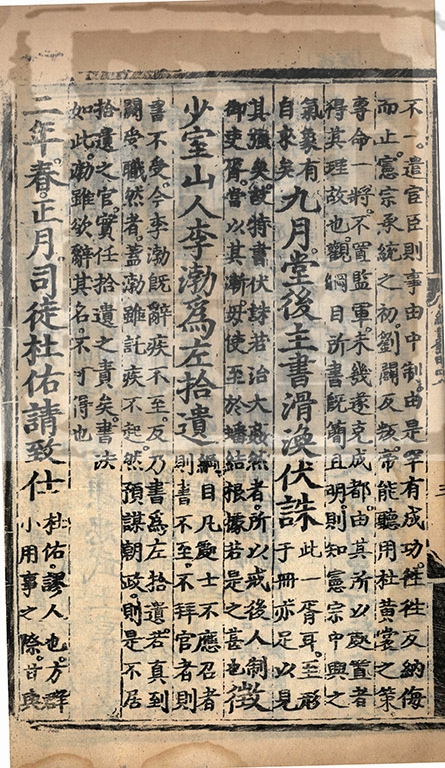 不一。遣宦臣則事由中制。由是罕有成功。徃徃反納侮
而止。憲宗承統之初。劉闢反叛。常能聽用杜黄裳之策
專命一將。不置監軍。未幾遂克成都。由其所以處置者
得其理故也。觀綱目所書既簡且明。則知憲宗中興之
氣象有
自來矣
九月。堂後主書滑渙伏誅
此一胥耳。至形
于冊亦足以見
其強矣。故特書伏誅。若治大惡然者。所以戒後人制
御吏胥。當以其漸。勿使至於蟠結根據若是之甚也
徵
少室山人李渤爲左拾遺
綱目凡處士不應召者
則書不至。不拜官者則
書不受。今李渤既辭疾不至。反乃書爲左拾遺。若真到
闕受職然者。蓋渤雖託疾不起。然預謀朝政。則是不居
拾遺之官。實任拾遺之責矣。書法
如此。渤雖欲辭其名。不可得也
二年。春。正月。司徒杜佑請致仕
杜佑。謬人也。方群
小用事之際。甘與